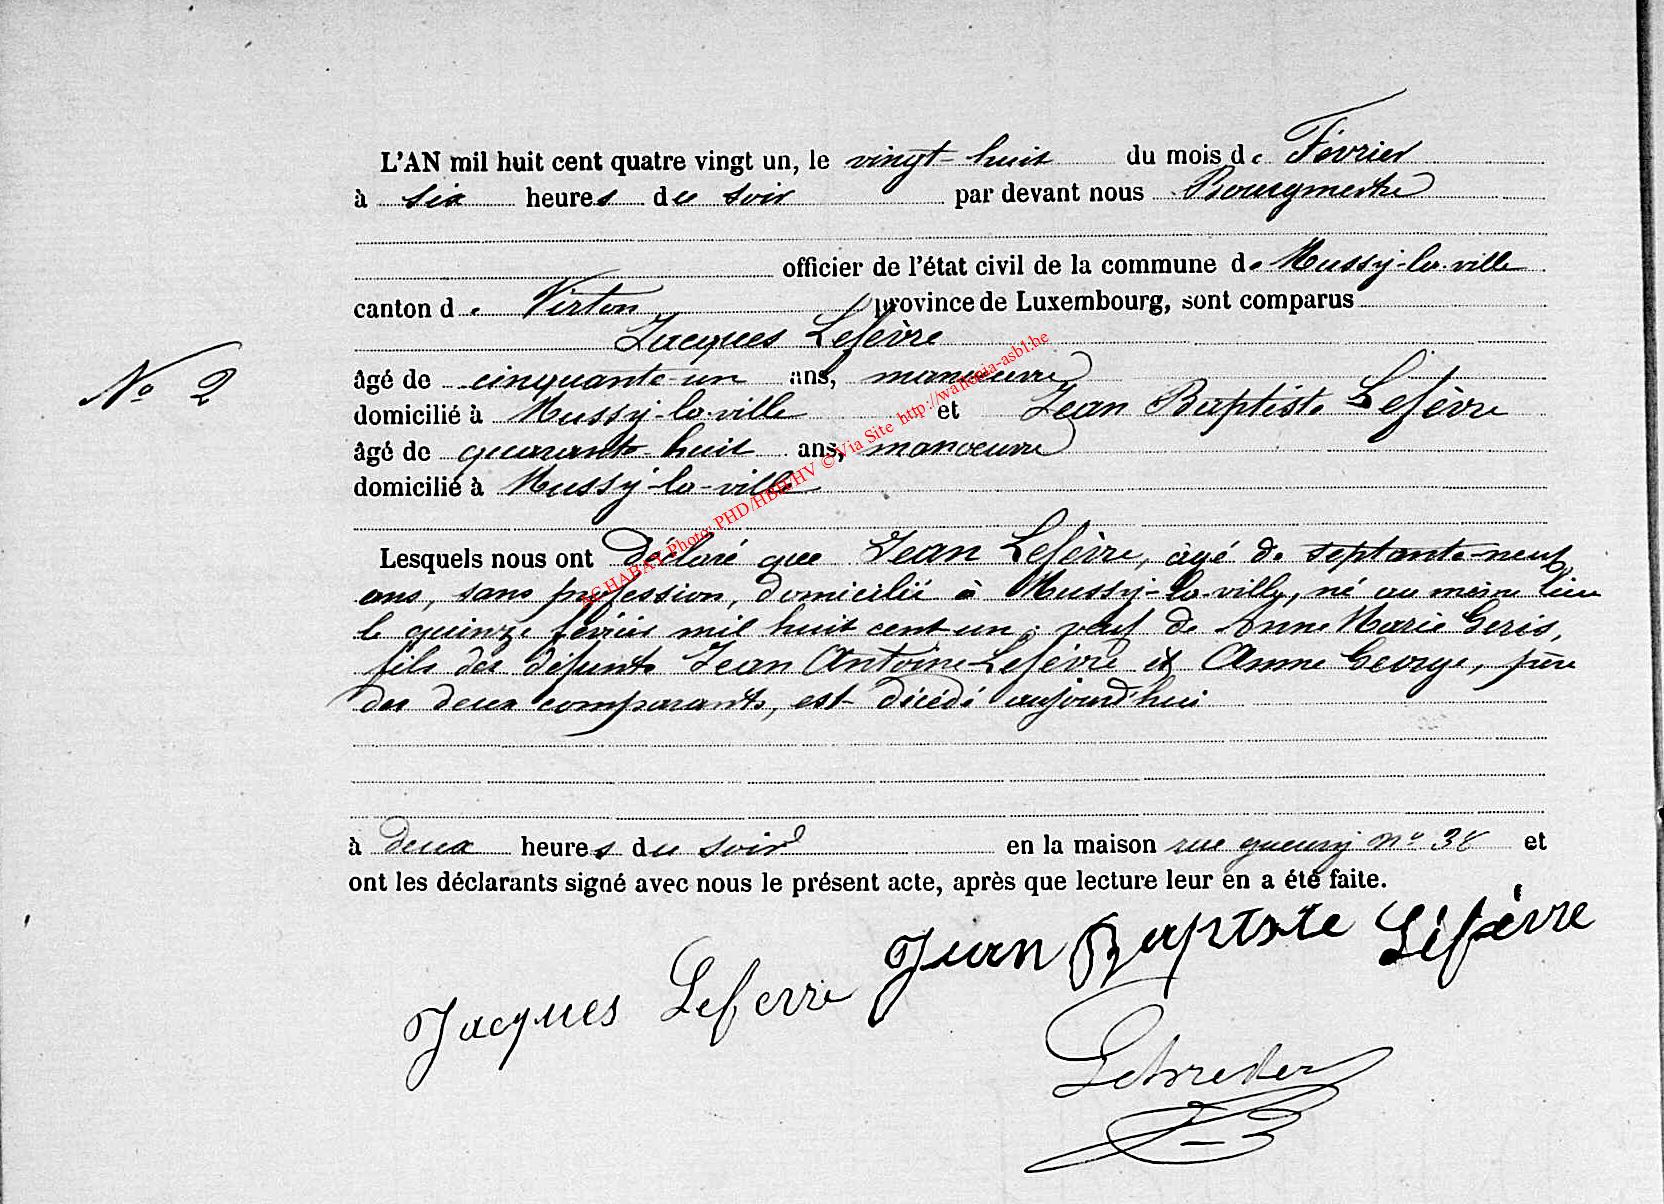 L'AN mil huit cent quatre vingt un, le vingt-huit du mois de Février
à six heures du soir par devant nous Bourgmestre
officier de l'état civil de la commune de Mussy-la-ville
canton de Virton province de Luxembourg, sont comparus
Jacques Lefèvre
N° 2
âgé de cinquante-un ans, manoeuvre
domicilié à Mussy-la-ville et Jean Baptiste Lefèvre
âgé de quarante-huit ans, manoeuvre
domicilié à Mussy-la-ville
Lesquels nous ont déclaré que Jean Lefèvre, âgé de septante-neuf
ans, sans profession, domicilié à Mussy-la-ville, né au même lieu
le quinze février mil huit cent un, veuf de Anne Marie Geris,
fils des défunts Jean Antoine Lefèvre et Anne George, père
des deux comparants, est décédé aujourd'hui
à deux heures du soir en la maison rue n° 38 et
ont les déclarants signé avec nous le présent acte, après que lecture leur en a été faite.
Jean Baptiste Léfèvre
Jacques Lefevre
Schreder
ACHABAY Photo: PHD/HBH/HV ©Via Site http://wallonia-asbl.be